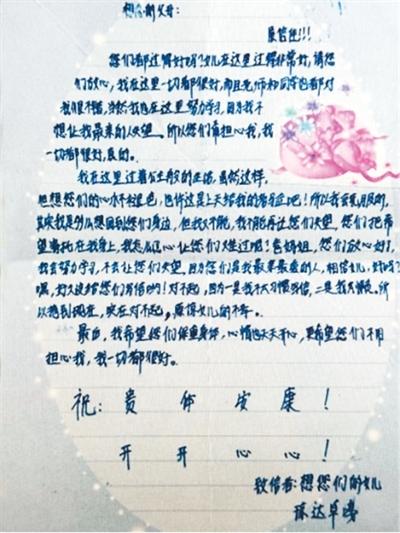 想念的父母:
展信佳!!!
您们都过得好吗?女儿在这里过得非常好,请您
们放心,我在这里一切都很好,而且老师和同学也都对
我很不错,当然我也在这里努力学习,因为我不
想让我最亲的人失望。所以您们别担心我,我
一切都很好,真的。
我在这里过着与生般的生活,虽然这样,
但想您们的心永不褪色,也许这是上天给我的考验吧!所以我会克服的。
其实我是多么想回到您们身边,但我又不能,我不能再让您们失望。您们把希
望寄托在我身上,我怎么忍心让您们失望过呢!爸妈姐,您们放心好了,
我会努力学习,不会让您们失望,因为您们是我最亲最爱的人,相信女儿,好吗?
嘿,好久没给您们写信哟!对不起,因为一是我不太习惯写信,二是我太懒。所
以拖到现在,实在对不起,原谅女儿的不孝。
最后,我希望您们保重身体,心情也天天开心,更希望您们不用
担心我,我一切都很好。
祝:贵体安康!
开开心心!
致信者:想您们的女儿
陈达草